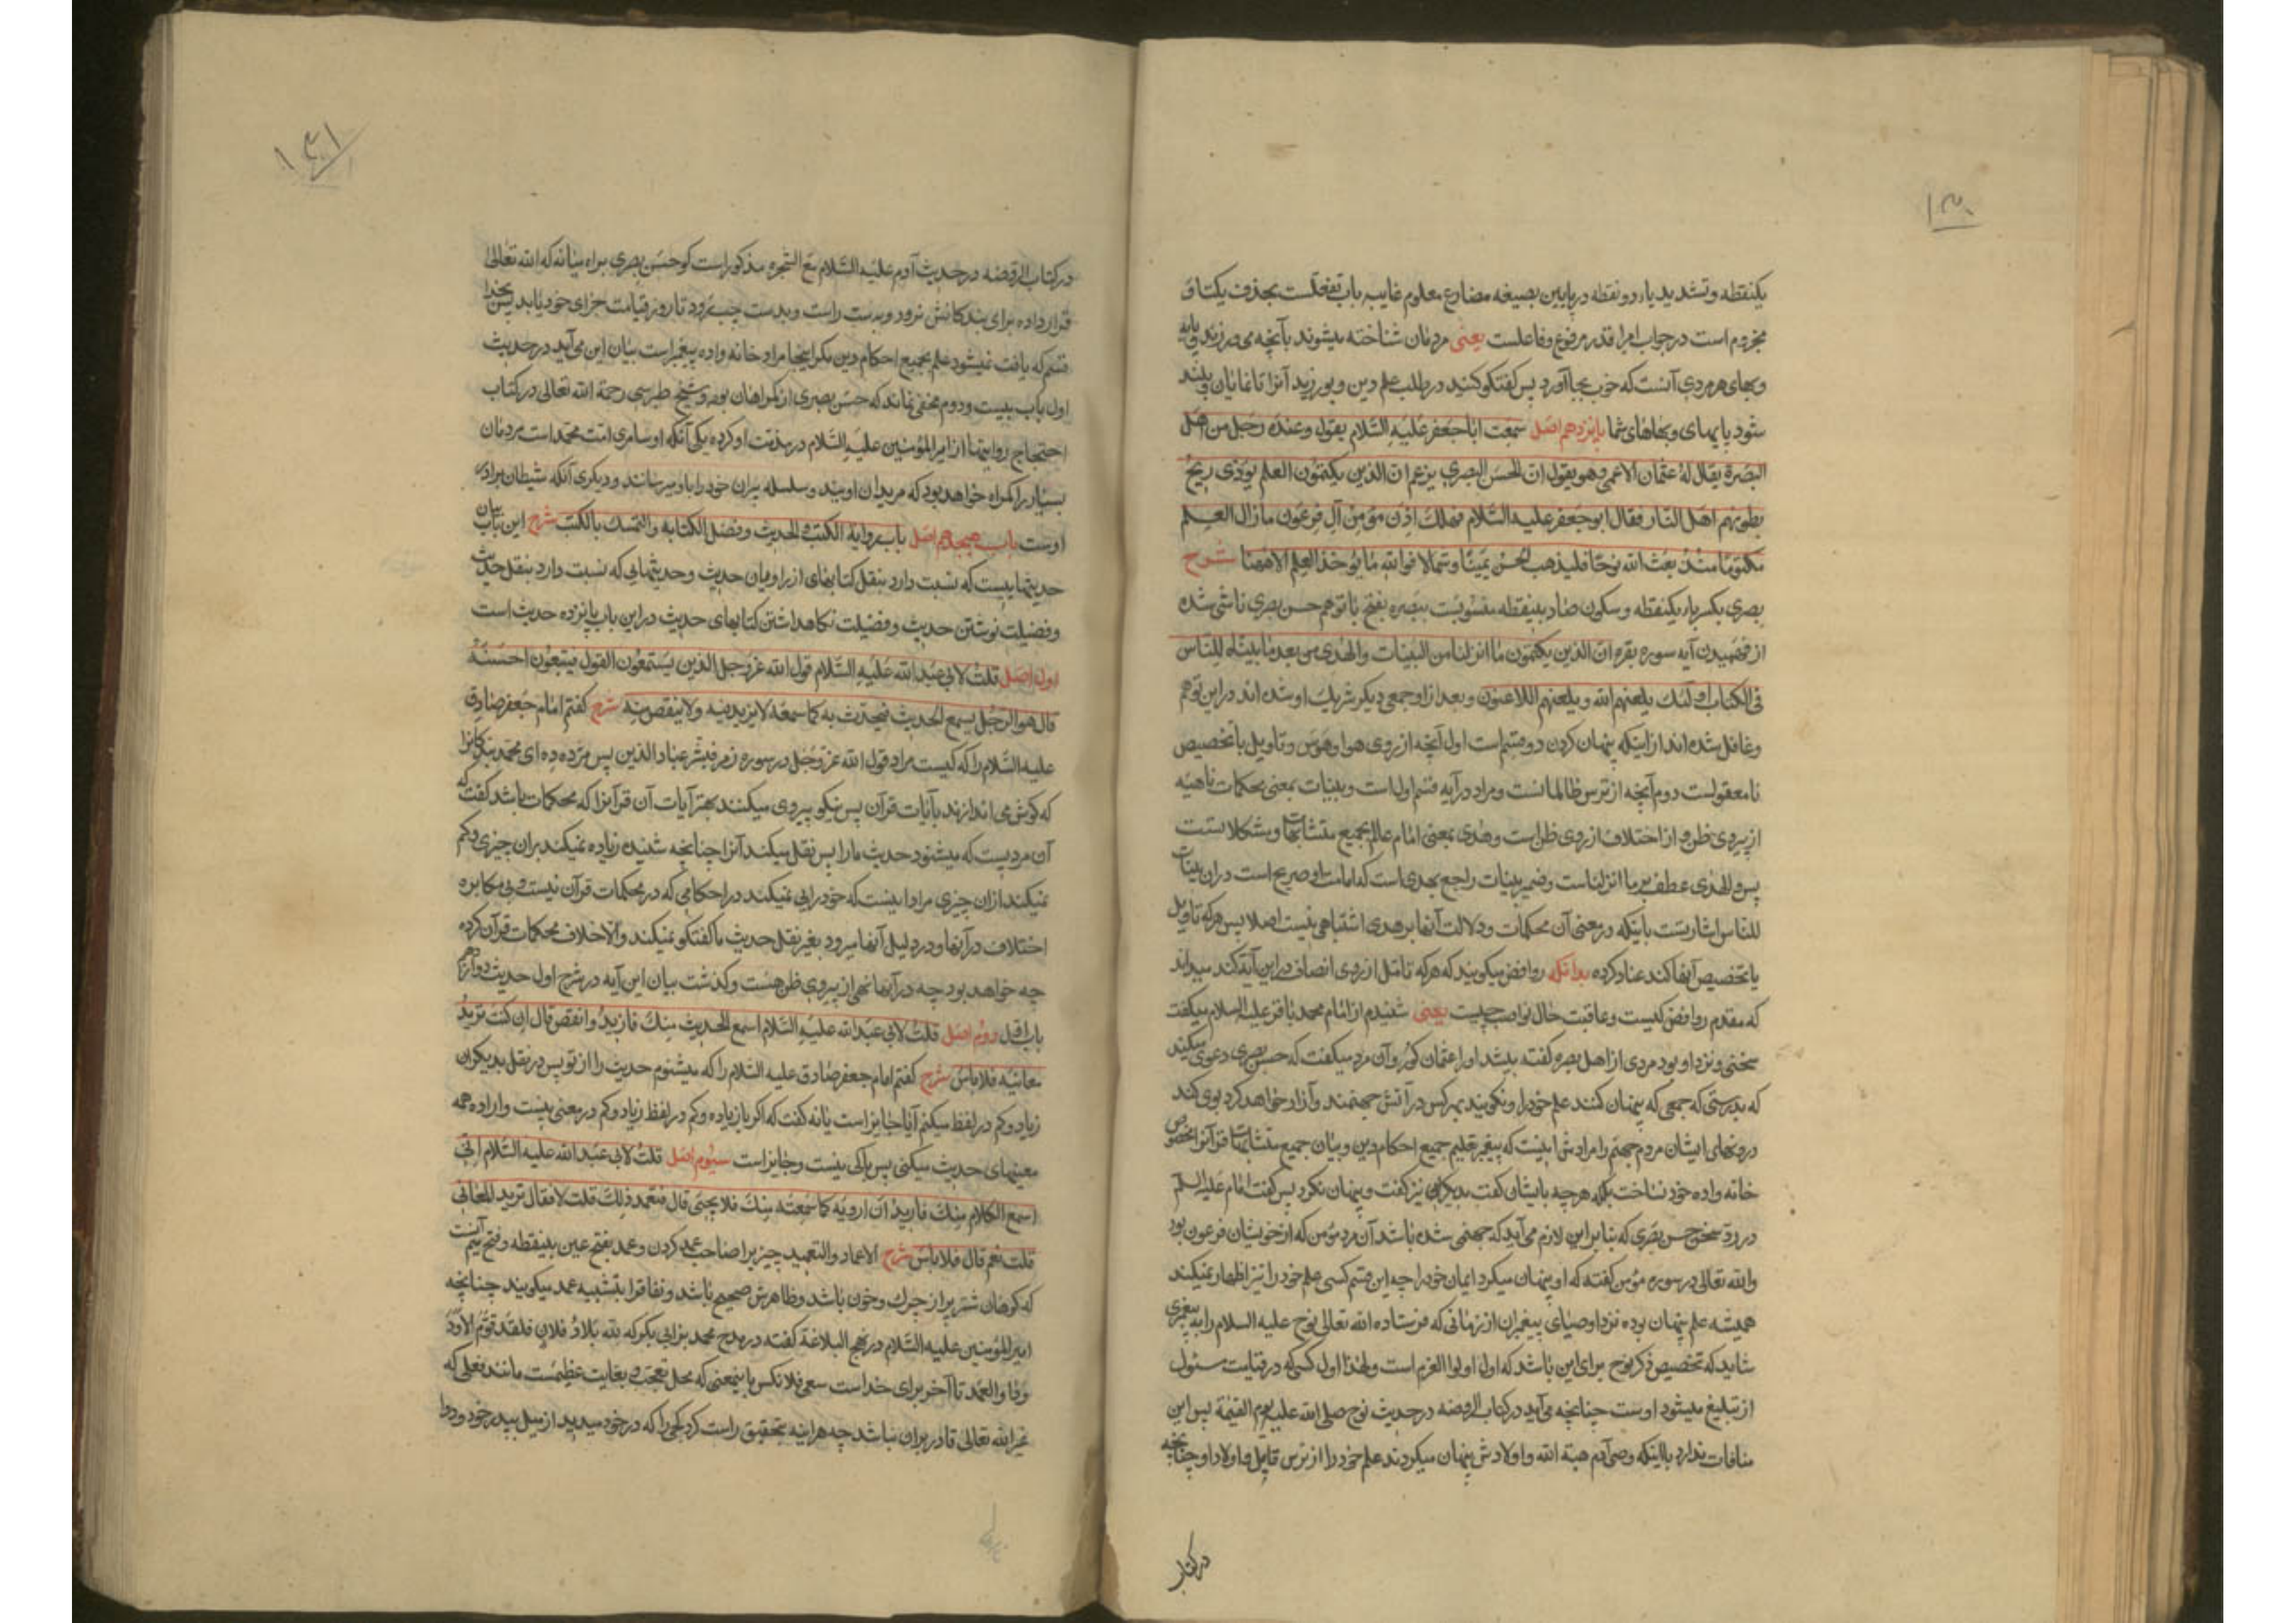 ۱۴۰
یکنقطه و تشدید یاء دو نقطه در پایین بصیغه مضارع معلوم غایب باب تفعلست بحذف یکتا و
مجزوم است در جواب امر اقدر مرفوع و فاعلست یعنی مردمان شناخته میشوند بآنچه می ورزند و پایه
و بهای هر مردی آنست که خوب بجا آورد پس گفتگو کنید در طلب علم دین و بورزید آنرا تا نمایان و بلند
شود پایهای و بهاهای شما پانزدهم اصل سمعت ابا جعفر علیه السلام یقول و عنده رجل من اهل
البصرة یقال له عثمان الاعمی و هو یقول ان الحسن البصری یزعم ان الذین یکتمون العلم یؤذی ریح
بطونهم اهل النار فقال ابو جعفر علیه السلام فهلک اذن مؤمن آل فرعون ما زال العلم
مکتوما منذ بعث الله نوحا فلیذهب الحسن یمینا و شمالا فوالله ما یوخذ العلم الا ههنا شرح
بصری بکسر باء یکنقطه و سکون صاد بینقطه منسوبست ببصره بفتح با توهم حسن بصری ناشی شده
از فهمیدن آیه سوره بقره ان الذین یکتمون ما انزلنا من البینات و الهدی من بعد ما بیناه للناس
فی الکتاب اولئک یلعنهم الله و یلعنهم اللاعنون و بعد از او جمعی دیگر شریک او شده اند در این توهم
و غافل شده اند از اینکه پنهان کردن دو قسم است اول آنچه از روی هوا و هوس و تاویل یا تخصیص
نامعقولست دوم آنچه از ترس ظالمانست و مراد در آیه قسم اول است و بینات بمعنی محکمات ناهیه
از پیروی ظن و از اختلاف از روی ظن است و هدی بمعنی امام عالم بجمیع متشابهات و مشکلاتست
پس و الهدی عطف بر ما انزلناست و ضمیر بینات راجع بهدی است که امامت او صریح است در آن بینات
للناس اشارتست باینکه در معنی آن محکمات و دلالت آنها بر هدی اشتباهی نیست اصلا پس هر که تاویل
یا تخصیص آنها کند عناد کرده بدانکه روافض میگویند که هر که تامل از روی انصاف در این آیه کند میداند
که مقدم روافض کیست و عاقبت حال نواصب چیست یعنی شنیدم از امام محمد باقر علیه السلام میگفت
سخنی و نزد او بود مردی از اهل بصره گفته میشد او را عثمان کور و آن مرد میگفت که حسن بصری دعوی میکند
که بدرستی که جمعی که پنهان کنند علم خود را و نگویند بهر کس در آتش جهنمند و آزار خواهد کرد بوی گند
درونهای ایشان مردم جهنم را مرادش اینست که پیغمبر تعلیم جمیع احکام دین و بیان جمیع متشابهات قرآنرا مخصوص
خانه واده خود نساخت بلکه هر چه بایشان گفت بدیگران نیز گفت و پنهان نکرد پس گفت امام علیه السلم
در رد سخن حسن بصری که بنابر این لازم می آید که جهنمی شده باشد آن مرد مؤمن که از خویشان فرعون بود
و الله تعالی در سوره مؤمن گفته که او پنهان میکرد ایمان خود را چه این قسم کسی علم خود را نیز اظهار نمیکند
همیشه علم پنهان بوده نزد اوصیای پیغمبران از زمانی که فرستاده الله تعالی نوح علیه السلام را به پیغمبری
شاید که تخصیص ذکر نوح برای این باشد که اول اولوا العزم است و لهذا اول کسی که در قیامت مسئول
از تبلیغ میشود اوست چنانچه می آید در کتاب الروضه در حدیث نوح صلی الله علیه یوم القیمة پس این
منافات ندارد با اینکه وصی آدم هبة الله و اولادش پنهان میکردند علم خود را از ترس قابیل و اولاد او چنانچه
در کتاب
۱۴۱
در کتاب الروضه در حدیث آدم علیه السلام مع الشجره مذکور است کو حسن بصری براه میانه که الله تعالی
قرار داده برای بندگانش نرود و بدست راست و بدست چپ برود تا روز قیامت جزای خود یابد پس بخدا
قسم که یافت نمیشود علم بجمیع احکام دین مگر اینجا مراد خانه واده پیغمبر است بیان این می آید در حدیث
اول باب بیست و دوم مخفی نماند که حسن بصری از گمراهان بوده و شیخ طبرسی رحمة الله تعالی در کتاب
احتجاج روایتها از امیر المؤمنین علیه السلام در مذمت او کرده یکی آنکه او سامری امت محمد است مردمان
بسیار را گمراه خواهد بود که مریدان اویند و سلسله پیران خود را باو میرسانند و دیگری آنکه شیطان برادر
اوست باب هیجدهم اصل باب روایة الکتب و الحدیث و فضل الکتابه و التمسک بالکتب شرح این باب بیان
حدیثهاییست که نسبت دارد بنقل کتابهای از راویان حدیث و حدیثهایی که نسبت دارد بنقل حدیث
و فضیلت نوشتن حدیث و فضیلت نگاهداشتن کتابهای حدیث در این باب پانزده حدیث است
اول اصل قلت لابی عبد الله علیه السلام قول الله عز و جل الذین یستمعون القول فیتبعون احسنه
قال هو الرجل یسمع الحدیث فیحدث به کما سمعه لا یزید فیه و لا ینقص منه شرح گفتم امام جعفر صادق
علیه السلام را که کیست مراد قول الله عز و جل در سوره زمر فبشر عباد الذین پس مژده ده ای محمد بندگانرا
که گوش می اندازند بآیات قرآن پس نیکو پیروی میکنند بهتر آیات آن قرآنرا که محکمات باشد گفت که
آن مردیست که میشنود حدیث ما را پس نقل میکند آنرا چنانچه شنیده زیاده نمیکند بران چیزی و کم
نمیکند از ان چیزی مراد اینست که خودرایی نمیکند در احکامی که در محکمات قرآن نیست و بی مکابره
اختلاف در آنها و در دلیل آنها میرود بغیر نقل حدیث ما گفتگو نمیکند و الا خلاف محکمات قرآن کرده
چه خواهد بود چه در آنها نهی از پیروی ظن هست و گذشت بیان این آیه در شرح اول حدیث دوازدهم
باب اول دوم اصل قلت لابی عبد الله علیه السلام اسمع الحدیث منک فازید و انقص قال ان کنت ترید
معانیه فلا باس شرح گفتم امام جعفر صادق علیه السلام را که میشنوم حدیث را از تو پس در نقل بدیگران
زیاد و کم در لفظ میکنم آیا جایز است یا نه گفت که اگر باز زیاده و کم در لفظ زیاد و کم در معنی نیست و اراده همه
معنیهای حدیث میکنی پس باکی نیست و جایز است سیوم اصل قلت لابی عبد الله علیه السلام انی
اسمع الکلام منک فارید ان ارویه کما سمعته منک فلا یجیئ قال فتعمد ذلک قلت لا فقال ترید المعانی
قلت نعم قال فلا باس شرح الاعماد و التعمید چیزی را صاحب عمد کردن و عمد بفتح عین بینقطه و فتح میم آنست
که کوهان شتر پر از چرک و خون باشد و ظاهرش صحیح باشد و نفاق را بتشبیه عمد میگویند چنانچه
امیر المؤمنین علیه السلام در نهج البلاغة گفته در مدح محمد بن ابی بکر که لله بلاد فلان فلقد قوم الاود
و داوا العمد تا آخر برای خداست سعی فلانکس باینمعنی که محل تعجب و بغایت عظیمست مانند فعلی که
غیر الله تعالی قادر بران نباشد چه هر اینه بتحقیق راست کرد کجی را که در خود میدید از میل بپدر خود و دوا